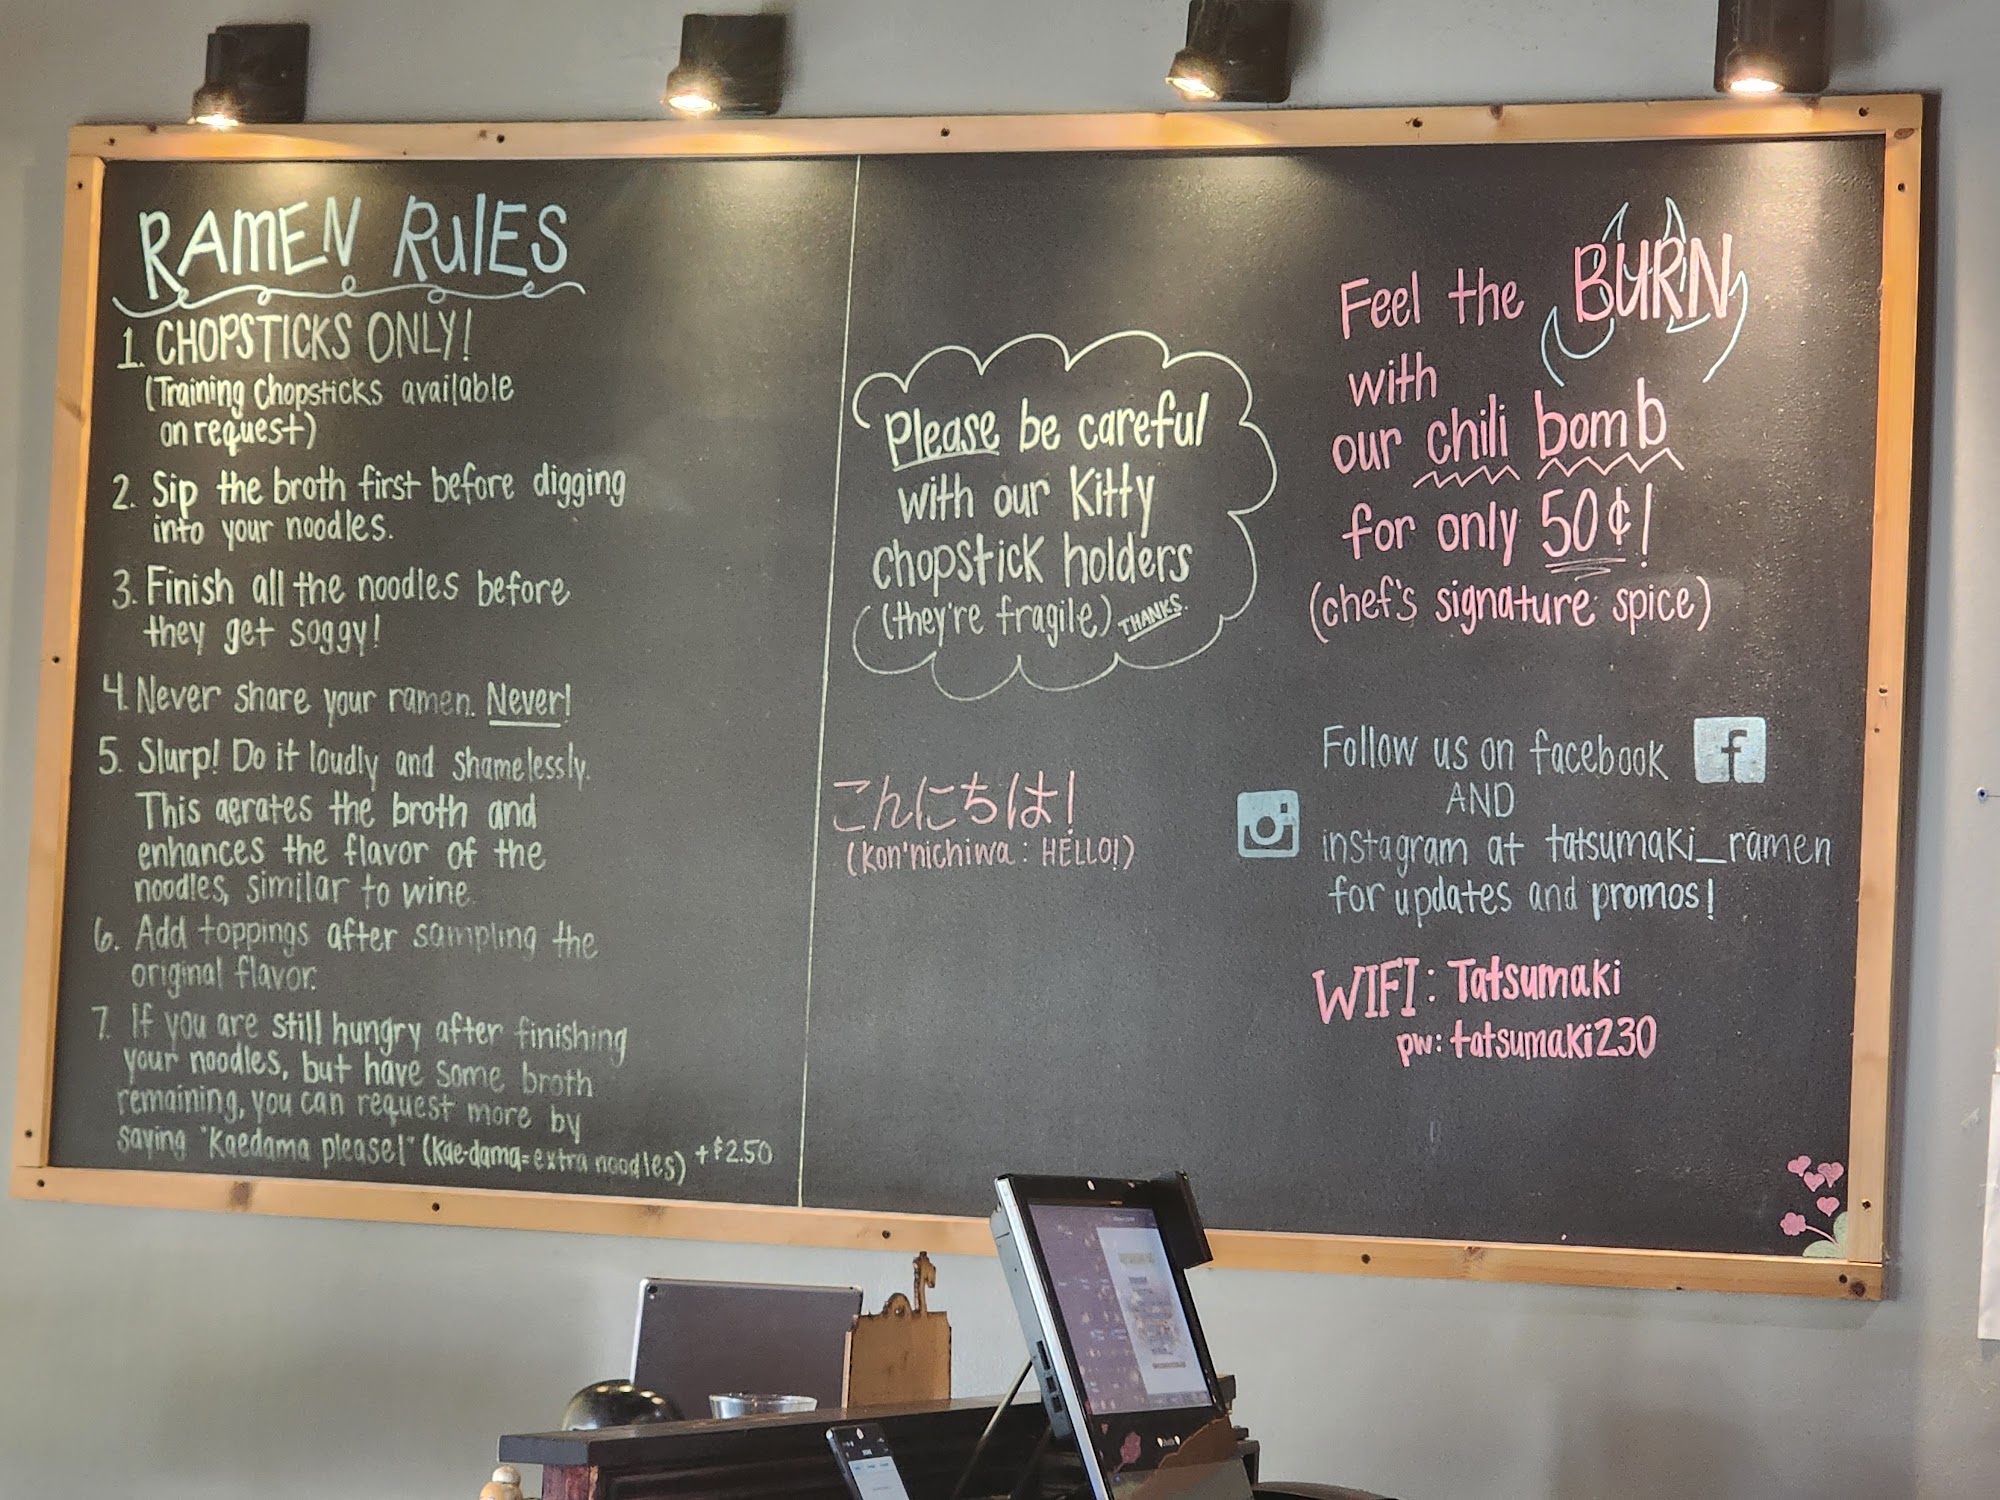 RAMEN RULES
1. CHOPSTICKS ONLY!
(Training Chopsticks available
on request)
2. Sip the broth first before digging
into your noodles.
3. Finish all the noodles before
they get soggy!
4. Never share your ramen. Never!
5. Slurp! Do it loudly and shamelessly.
This aerates the broth and
enhances the flavor of the
noodles, similar to wine.
6. Add toppings after sampling the
original flavor.
7. If you are still hungry after finishing
your noodles, but have some broth
remaining, you can request more by
saying "Kaedama please!" (Kae-dama = extra noodles) + $2.50
Please be careful
with our Kitty
chopstick holders
(they're fragile) THANKS.
こんにちは!
(Kon'nichiwa : HELLO!)
Feel the BURN
with
our chili bomb
for only 50¢!
(chef's signature spice)
Follow us on facebook f
AND
instagram at tatsumaki_ramen
for updates and promos!
WIFI: Tatsumaki
pw: tatsumaki230